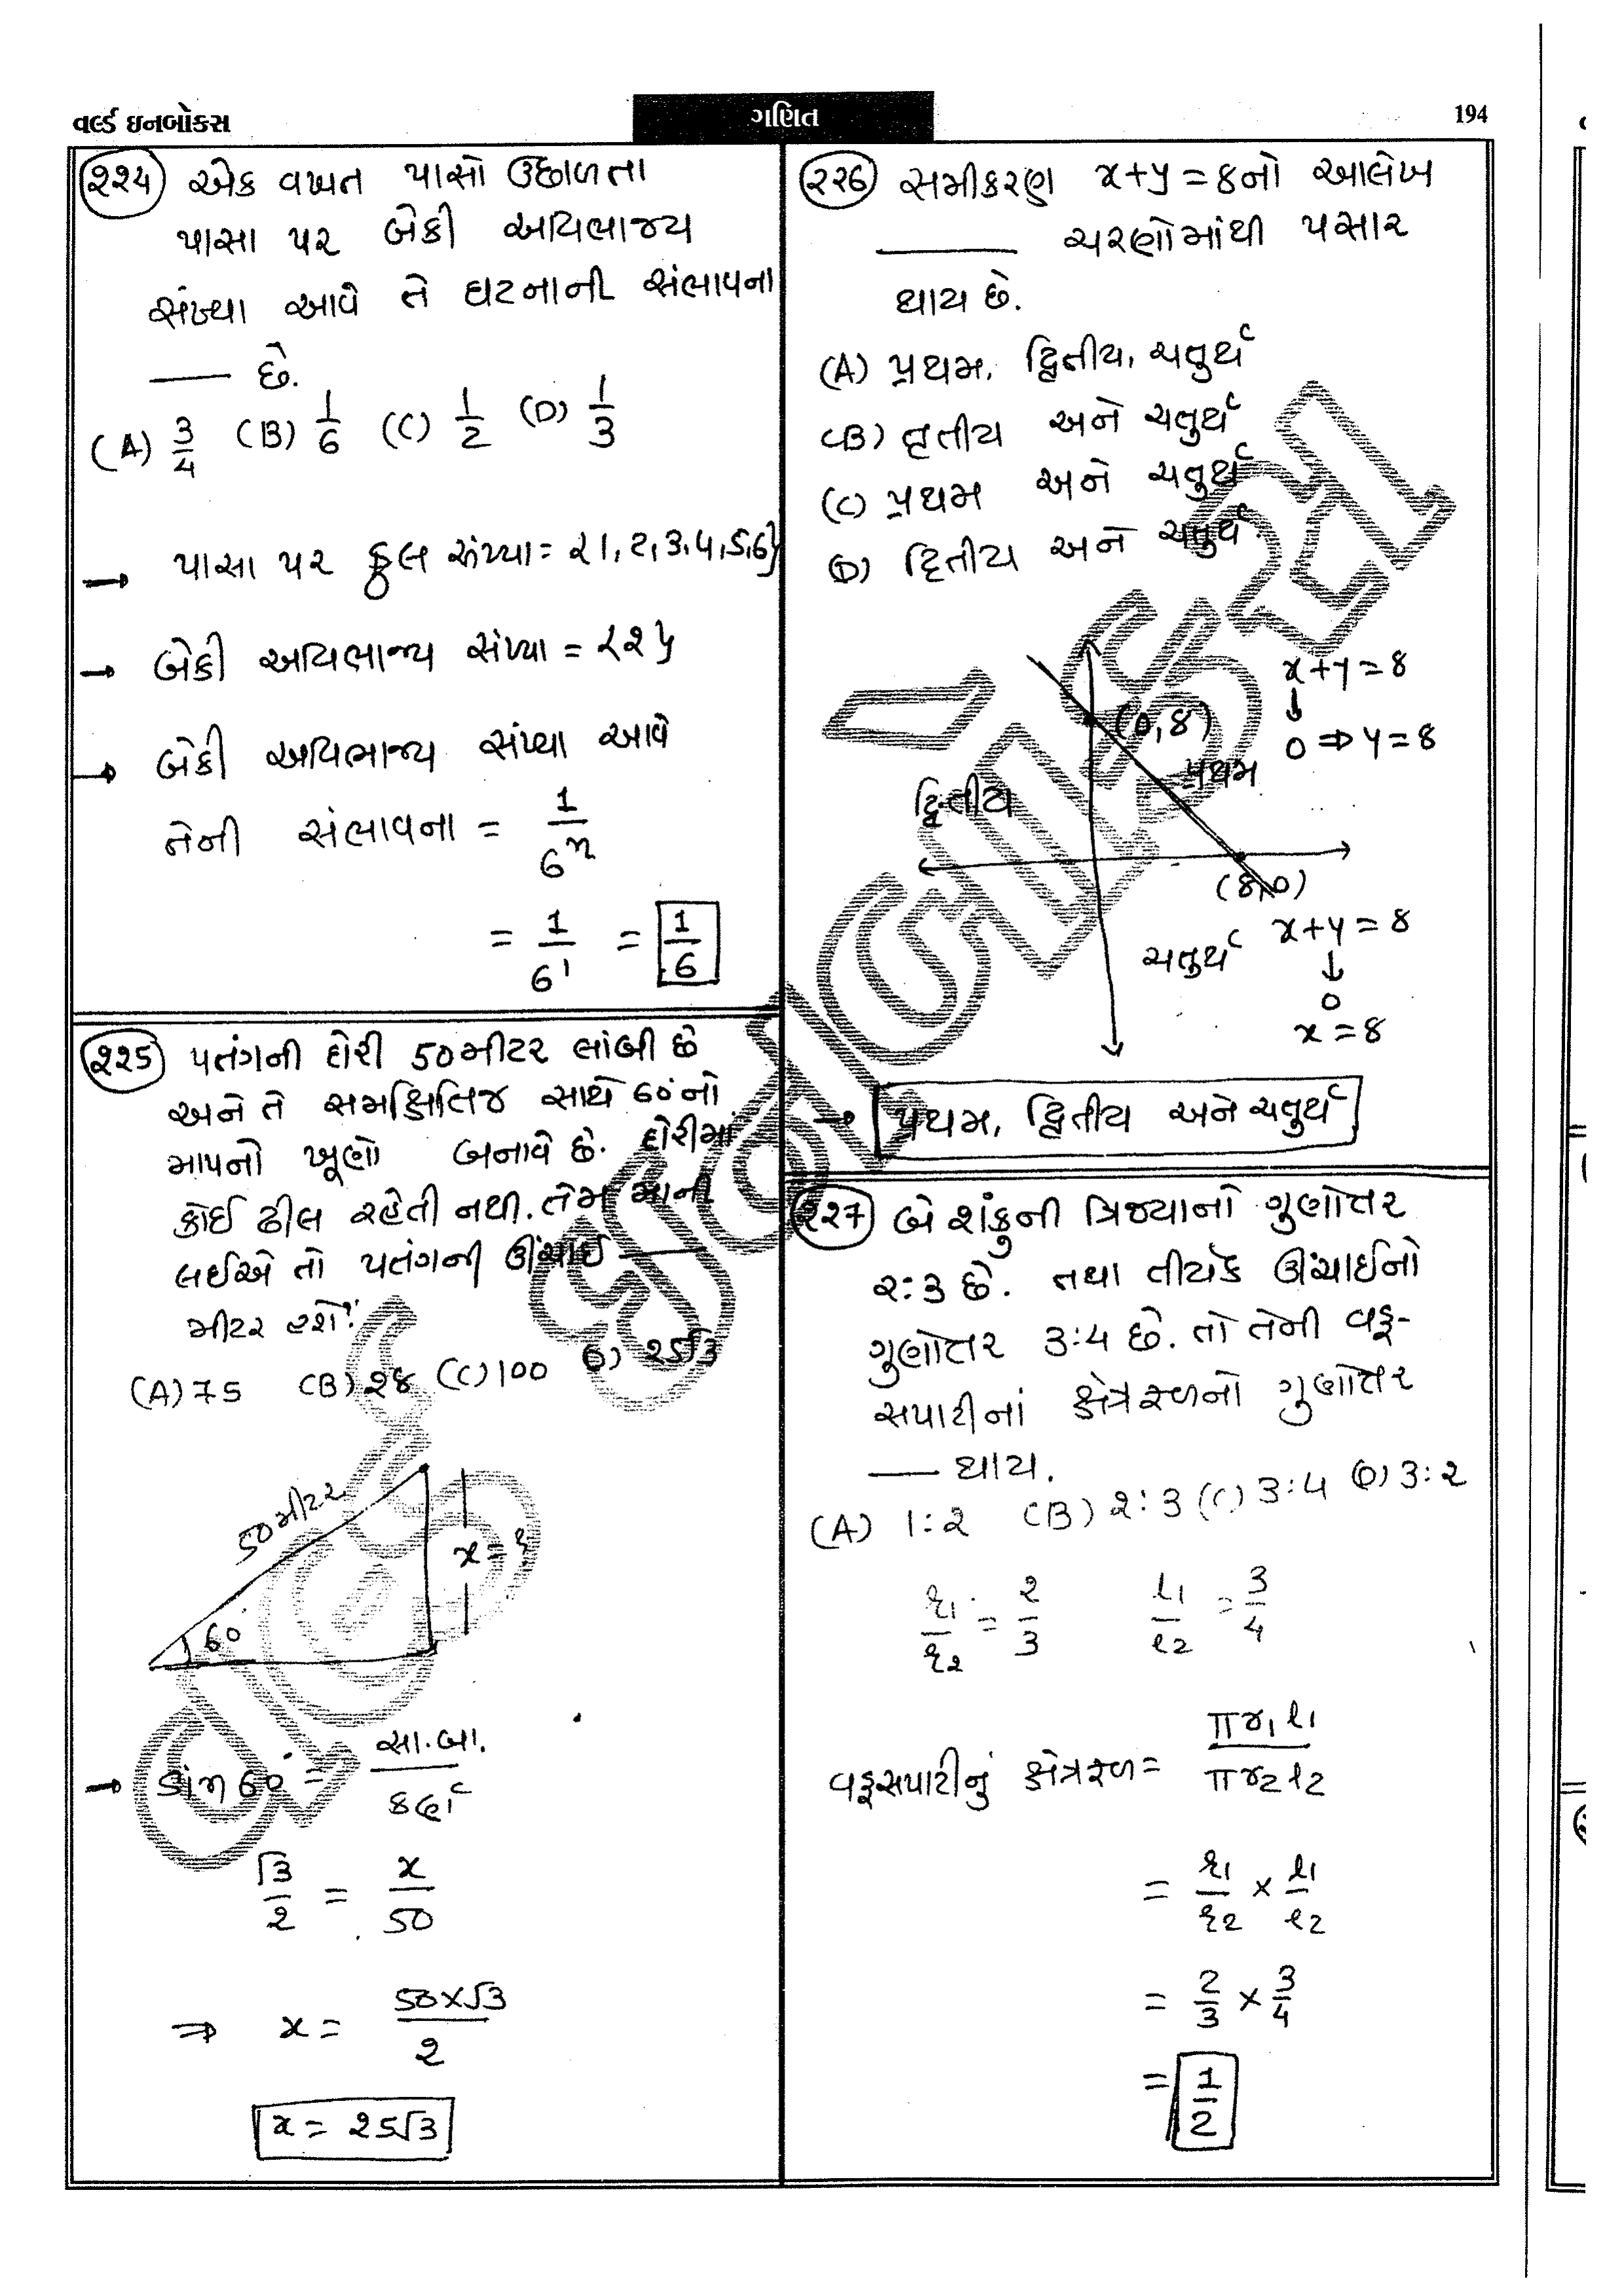 વર્લ્ડ ઇનબોક્સ
ગણિત
194
૨૨૪ એક વખત પાસો ઉછાળતા
પાસા પર બેકી અવિભાજ્ય
સંખ્યા આવે તે ઘટનાની સંભાવના
___ છે.
(A) 3/4 (B) 1/6 (C) 1/2 (D) 1/3
→ પાસા પર કુલ સંખ્યા = {1, 2, 3, 4, 5, 6}
→ બેકી અવિભાજ્ય સંખ્યા = {૨}
→ બેકી અવિભાજ્ય સંખ્યા આવે
તેની સંભાવના = 1/6ⁿ
= 1/6¹ = 1/6
૨૨૫ પતંગની દોરી 50 મીટર લાંબી છે
અને તે સમક્ષિતિજ સાથે 60° નો
માપનો ખૂણો બનાવે છે. દોરીમાં
કોઈ ઢીલ રહેતી નથી. તેમ માની
લઈએ તો પતંગની ઊંચાઈ ___
મીટર હશે?
(A) 75 (B) ૨૪ (C) 100 (D) ૨૫√3
50 મીટર
x = ?
60°
→ sin 60° = સા.બા. / કર્ણ
√3/૨ = x/50
⇒ x = 50×√3/૨
x = ૨૫√3
૨૨૬ સમીકરણ x+y = 8નો આલેખ
______ ચરણોમાંથી પસાર
થાય છે.
(A) પ્રથમ, દ્વિતીય, ચતુર્થ
(B) તૃતીય અને ચતુર્થ
(C) પ્રથમ અને ચતુર્થ
(D) દ્વિતીય અને ચતુર્થ
x+y = 8
↓
0 ⇒ y = 8
(0,8)
પ્રથમ
દ્વિતીય
(8,0)
ચતુર્થ
x+y = 8
↓
0
x = 8
→ પ્રથમ, દ્વિતીય અને ચતુર્થ
૨૨૭ બે શંકુની ત્રિજ્યાનો ગુણોત્તર
૨:3 છે. તથા તીર્યક ઊંચાઈનો
ગુણોત્તર 3:4 છે. તો તેની વક્ર-
સપાટીનાં ક્ષેત્રફળનો ગુણોત્તર
___ થાય.
(A) 1:૨ (B) ૨:3 (C) 3:4 (D) 3:૨
r₁/r₂ = ૨/3 l₁/l₂ = 3/4
વક્રસપાટીનું ક્ષેત્રફળ = πr₁l₁ / πr₂l₂
= r₁/r₂ × l₁/l₂
= 2/3 × 3/4
= 1/2